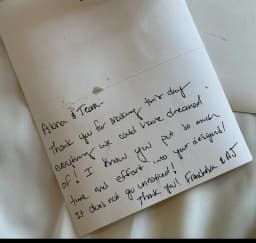 & Team -
Thank you for making this day
everything we could have dreamed
of! I know you put so much
time and effort into your designs!
It does not go unnoticed!
Thank you! & AJ